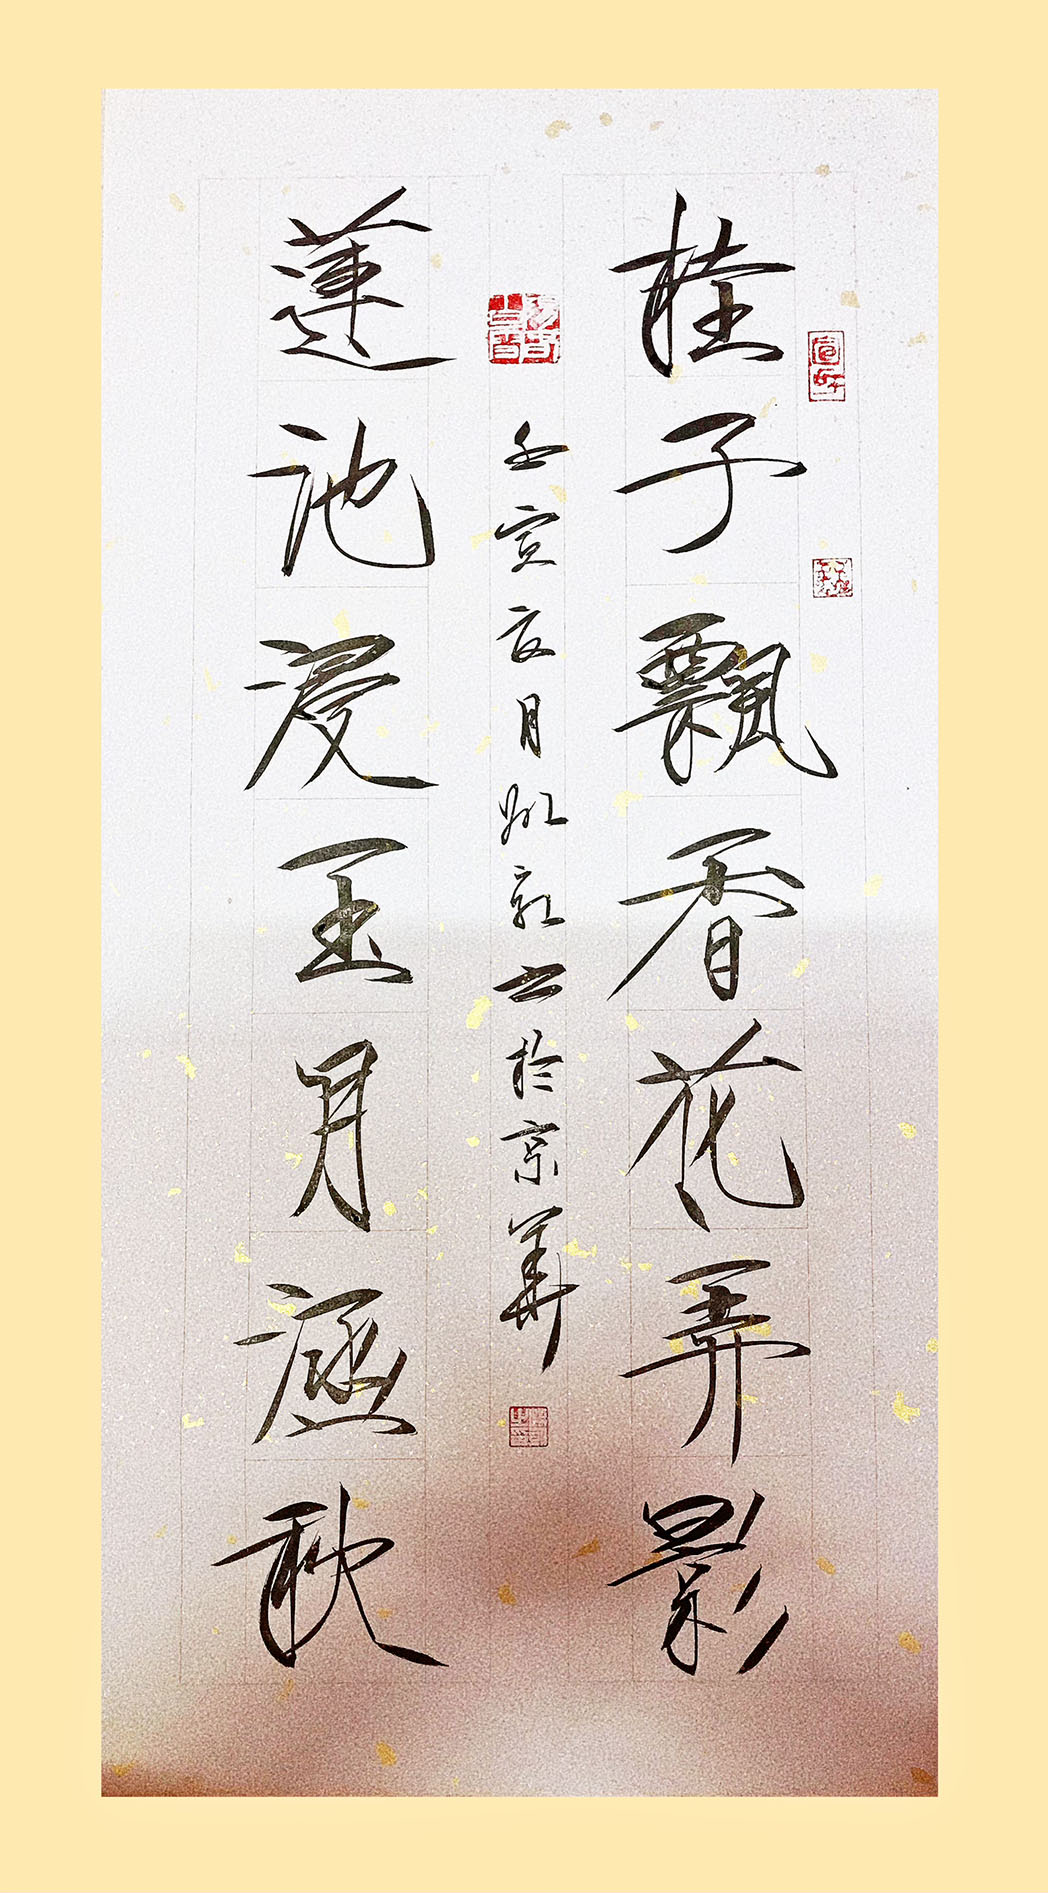 桂子飄香花弄影
蓮池浸玉月涵秋
壬寅夜月 於京華